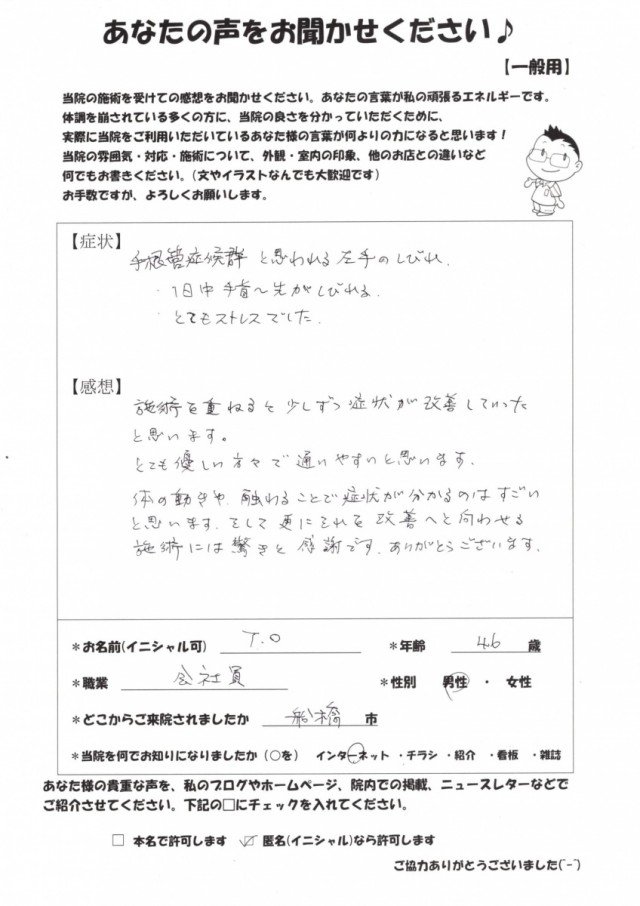 あなたの声をお聞かせください♪
【一般用】
当院の施術を受けての感想をお聞かせください。あなたの言葉が私の頑張るエネルギーです。
体調を崩されている多くの方に、当院の良さを分かっていただくために、
実際に当院をご利用いただいているあなた様の言葉が何よりの力になると思います!
当院の雰囲気・対応・施術について、外観・室内の印象、他のお店との違いなど
何でもお書きください。(文やイラストなんでも大歓迎です)
お手数ですが、よろしくお願いします。
【症状】
手根管症候群と思われる左手のしびれ.
・1日中手首〜先がしびれる.
・とてもストレスでした.
【感想】
施術を重ねると少しずつ症状が改善していった
と思います。
とても優しい方々で通いやすいと思います.
体の動きや、触わることで症状が分かるのはすごい
と思います.そして更にそれを改善へと向わせる
施術には驚きと感謝です.ありがとうございます.
*お名前(イニシャル可) T.O *年齢 46 歳
*職業 会社員 *性別 男性 ・ 女性
*どこからご来院されましたか 船橋 市
*当院を何でお知りになりましたか(○を) インターネット ・チラシ ・紹介 ・看板 ・雑誌
あなた様の貴重な声を、私のブログやホームページ、院内での掲載、ニュースレターなどで
ご紹介させてください。下記の□にチェックを入れてください。
□ 本名で許可します ☑ 匿名(イニシャル)なら許可します
ご協力ありがとうございました(^-^)